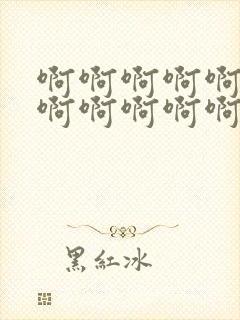 啊啊啊啊啊
啊啊啊啊啊
黑紅冰